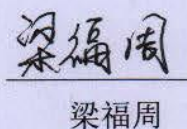 梁福周
梁福周